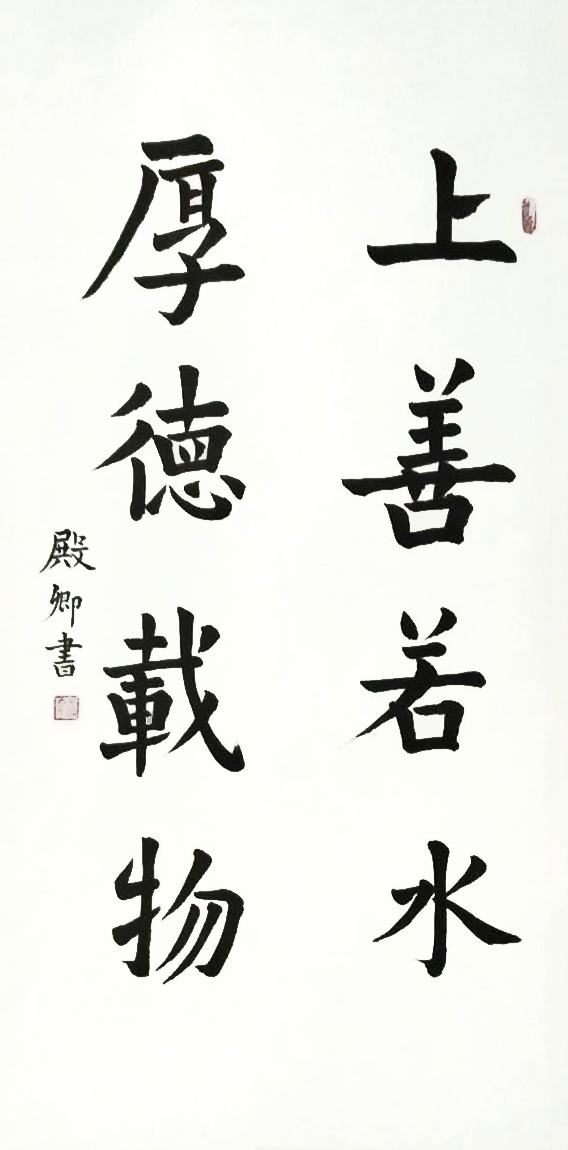 上善若水
厚德載物
殿卿書